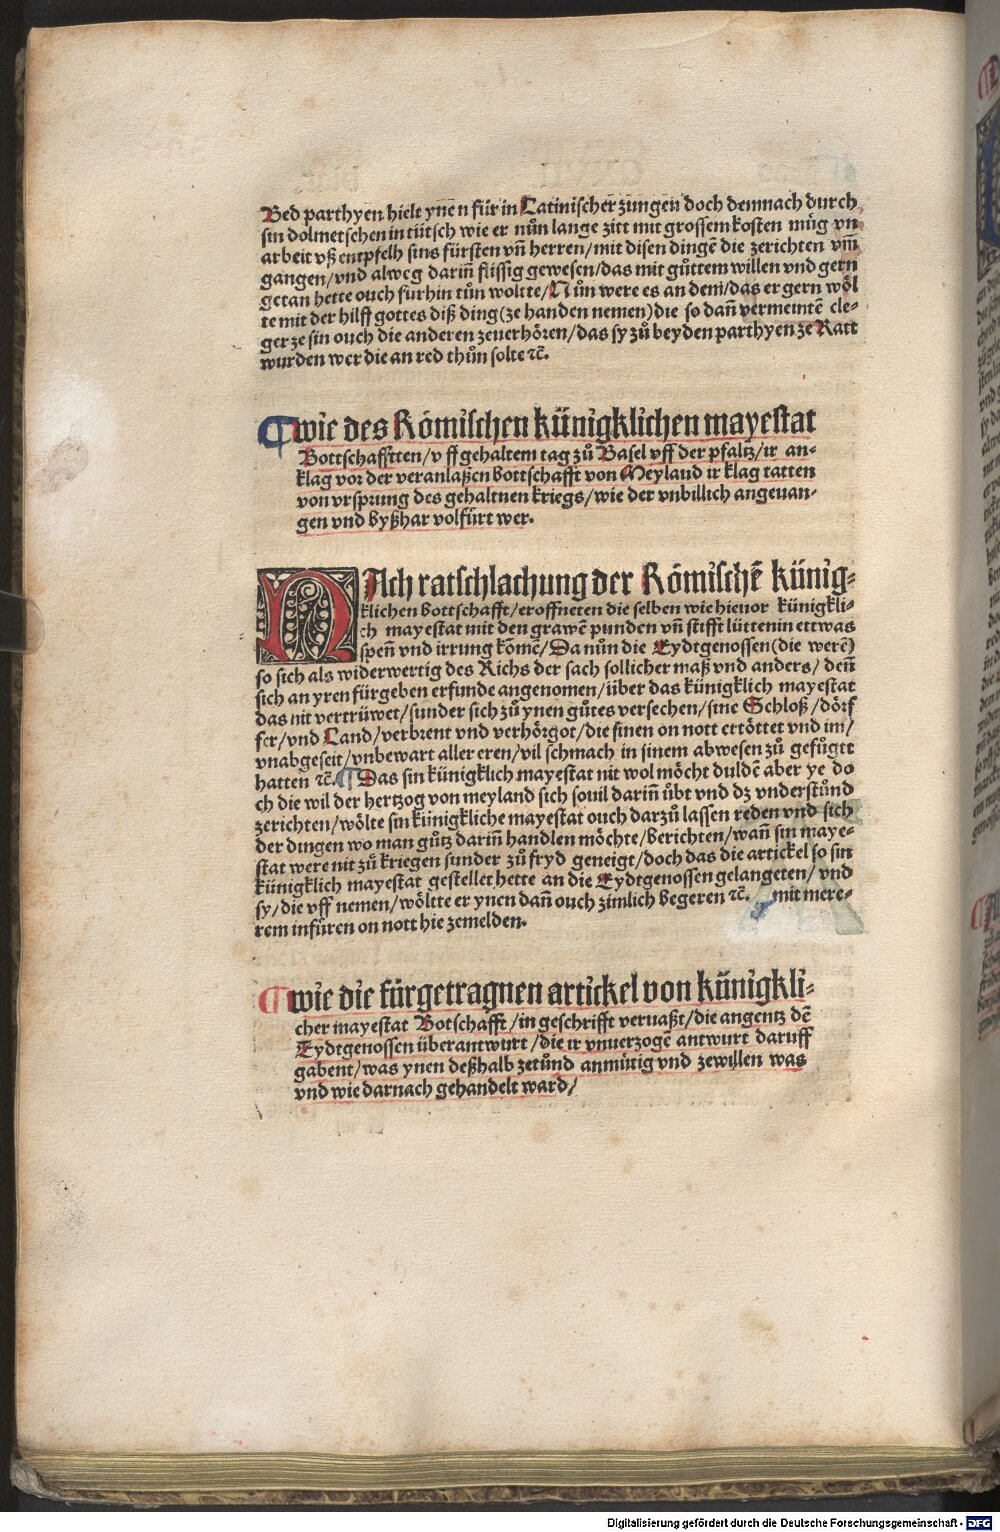 Bed parthyen hielt ynen für in Latinischer zungen doch demnach durch
sin dolmetschen in tütsch wie er nůn lange zitt mit grossem kosten müg vn̄
arbeit vß entpfelh sins fürsten vn̄ herren/mit disen dingē die zerichten vm̄
gangen/vnd alweg darin̄ flissig gewesen/das mit gůttem willen vnd gern
getan hette ouch fürhin tůn woltte/Nůn were es an dem/das er gern wöl
te mit der hilff gottes diß ding(ze handen nemen)die so dan̄ vermeintē cle-
ger ze sin ouch die anderen zeuerhören/das sy zů beyden parthyen ze Ratt
wurden wer die an red thůn solte ⁊c̄.
¶wie des Römischen künigklichen mayestat
Bottschafftten/vff gehaltem tag zů Basel vff der pfaltz/ir an-
klag vor der veranlaßzen bottschafft von Meyland ir klag tatten
von vrsprung des gehaltnen kriegs/wie der vnbillich angeuan-
gen vnd byßhar volfürt wer.
NAch ratschlachung der Römischē künig-
klichen bottschafft/eroffneten die selben wie hieuor künigkli-
ch mayestat mit den grawē punden vn̄ stifft lüttenin ettwas
spen̄ vnd irrung komē/Da nůn die Eydtgenossen(die werē)
so sich als widerwertig des Richs der sach sollicher maß vnd anders/den̄
sich an yren fürgeben erfunde angenomen/über das künigklich mayestat
das nit vertrüwet/sunder sich zů ynen gůtes versechen/sine Schloß/dörf
fer/vnd Land/verbrent vnd verhörgot/die sinen on nott ertöttet vnd im/
vnabgeseit/vnbewart aller eren/vil schmach in sinem abwesen zů gefůgtt
hatten ⁊c̄.¶Das sin künigklich mayestat nit wol möcht duldē aber ye do
ch die wil der hertzog von meyland sich souil darin̄ übt vnd dz vnderstůnd
zerichten/wölte sin künigkliche mayestat ouch darzů lassen reden vnd sich
der dingen wo man gůtz darin̄ handlen möchte/berichten/wan̄ sin maye-
stat were nit zů kriegen sunder zů fryd geneigt/doch das die artickel so sin
künigklich mayestat gestellet hette an die Eydtgenossen gelangeten/vnd
sy/die vff nemen/wöltte er ynen dan̄ ouch zimlich begeren ⁊c̄. mit mere-
rem infüren on nott hie zemelden.
¶wie die fürgetragnen artickel von künigkli-
cher mayestat Botschafft/in geschrifft veruaßt/die angentz dē
Eydtgenossen überantwurt/die ir vnuerzogē antwurt daruff
gabent/was ynen deßhalb zetůnd anmütig vnd zewillen was
vnd wie darnach gehandelt ward/
Digitalisierung gefördert durch die Deutsche Forschungsgemeinschaft - DFG